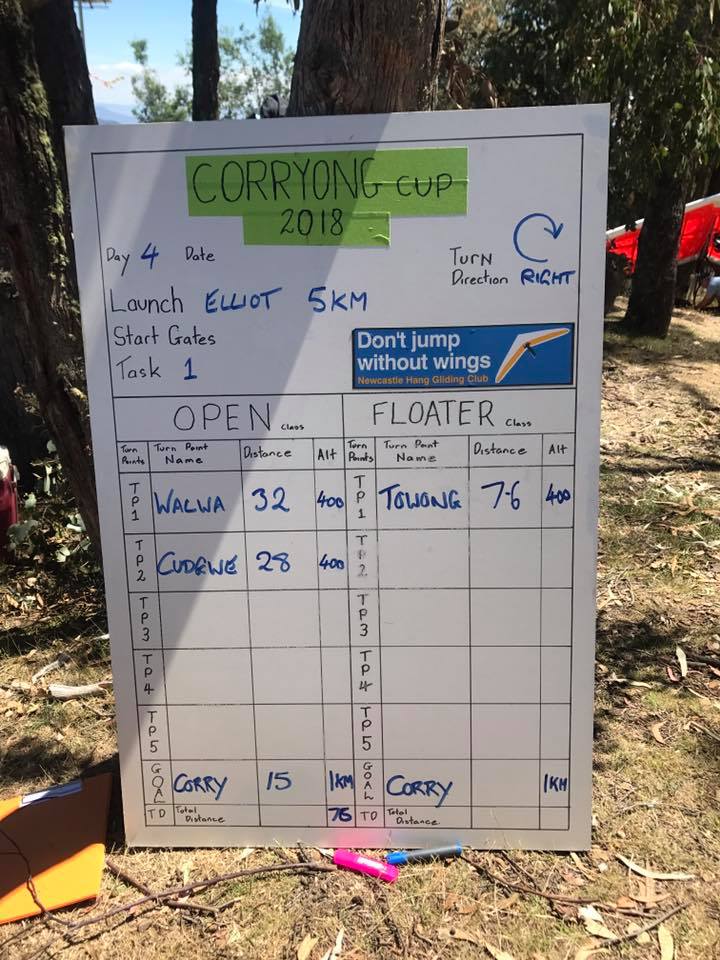 CORRYONG CUP
2018
Day 4 Date
Turn
Direction RIGHT
Launch ELLIOT 5KM
Start Gates
Task 1
Don't jump
without wings
Newcastle Hang Gliding Club
OPEN Class FLOATER Class
Turn Points Turn Point Name Distance Alt Turn Points Turn Point Name Distance Alt
TP1 WALWA 32 400 TP1 TOWONG 7.6 400
TP2 CUDEWE 28 400 TP2
TP3 TP3
TP4 TP4
TP5 TP5
GOAL CORRY 15 1KM GOAL CORRY 1KM
TD Total Distance 75 TD Total Distance